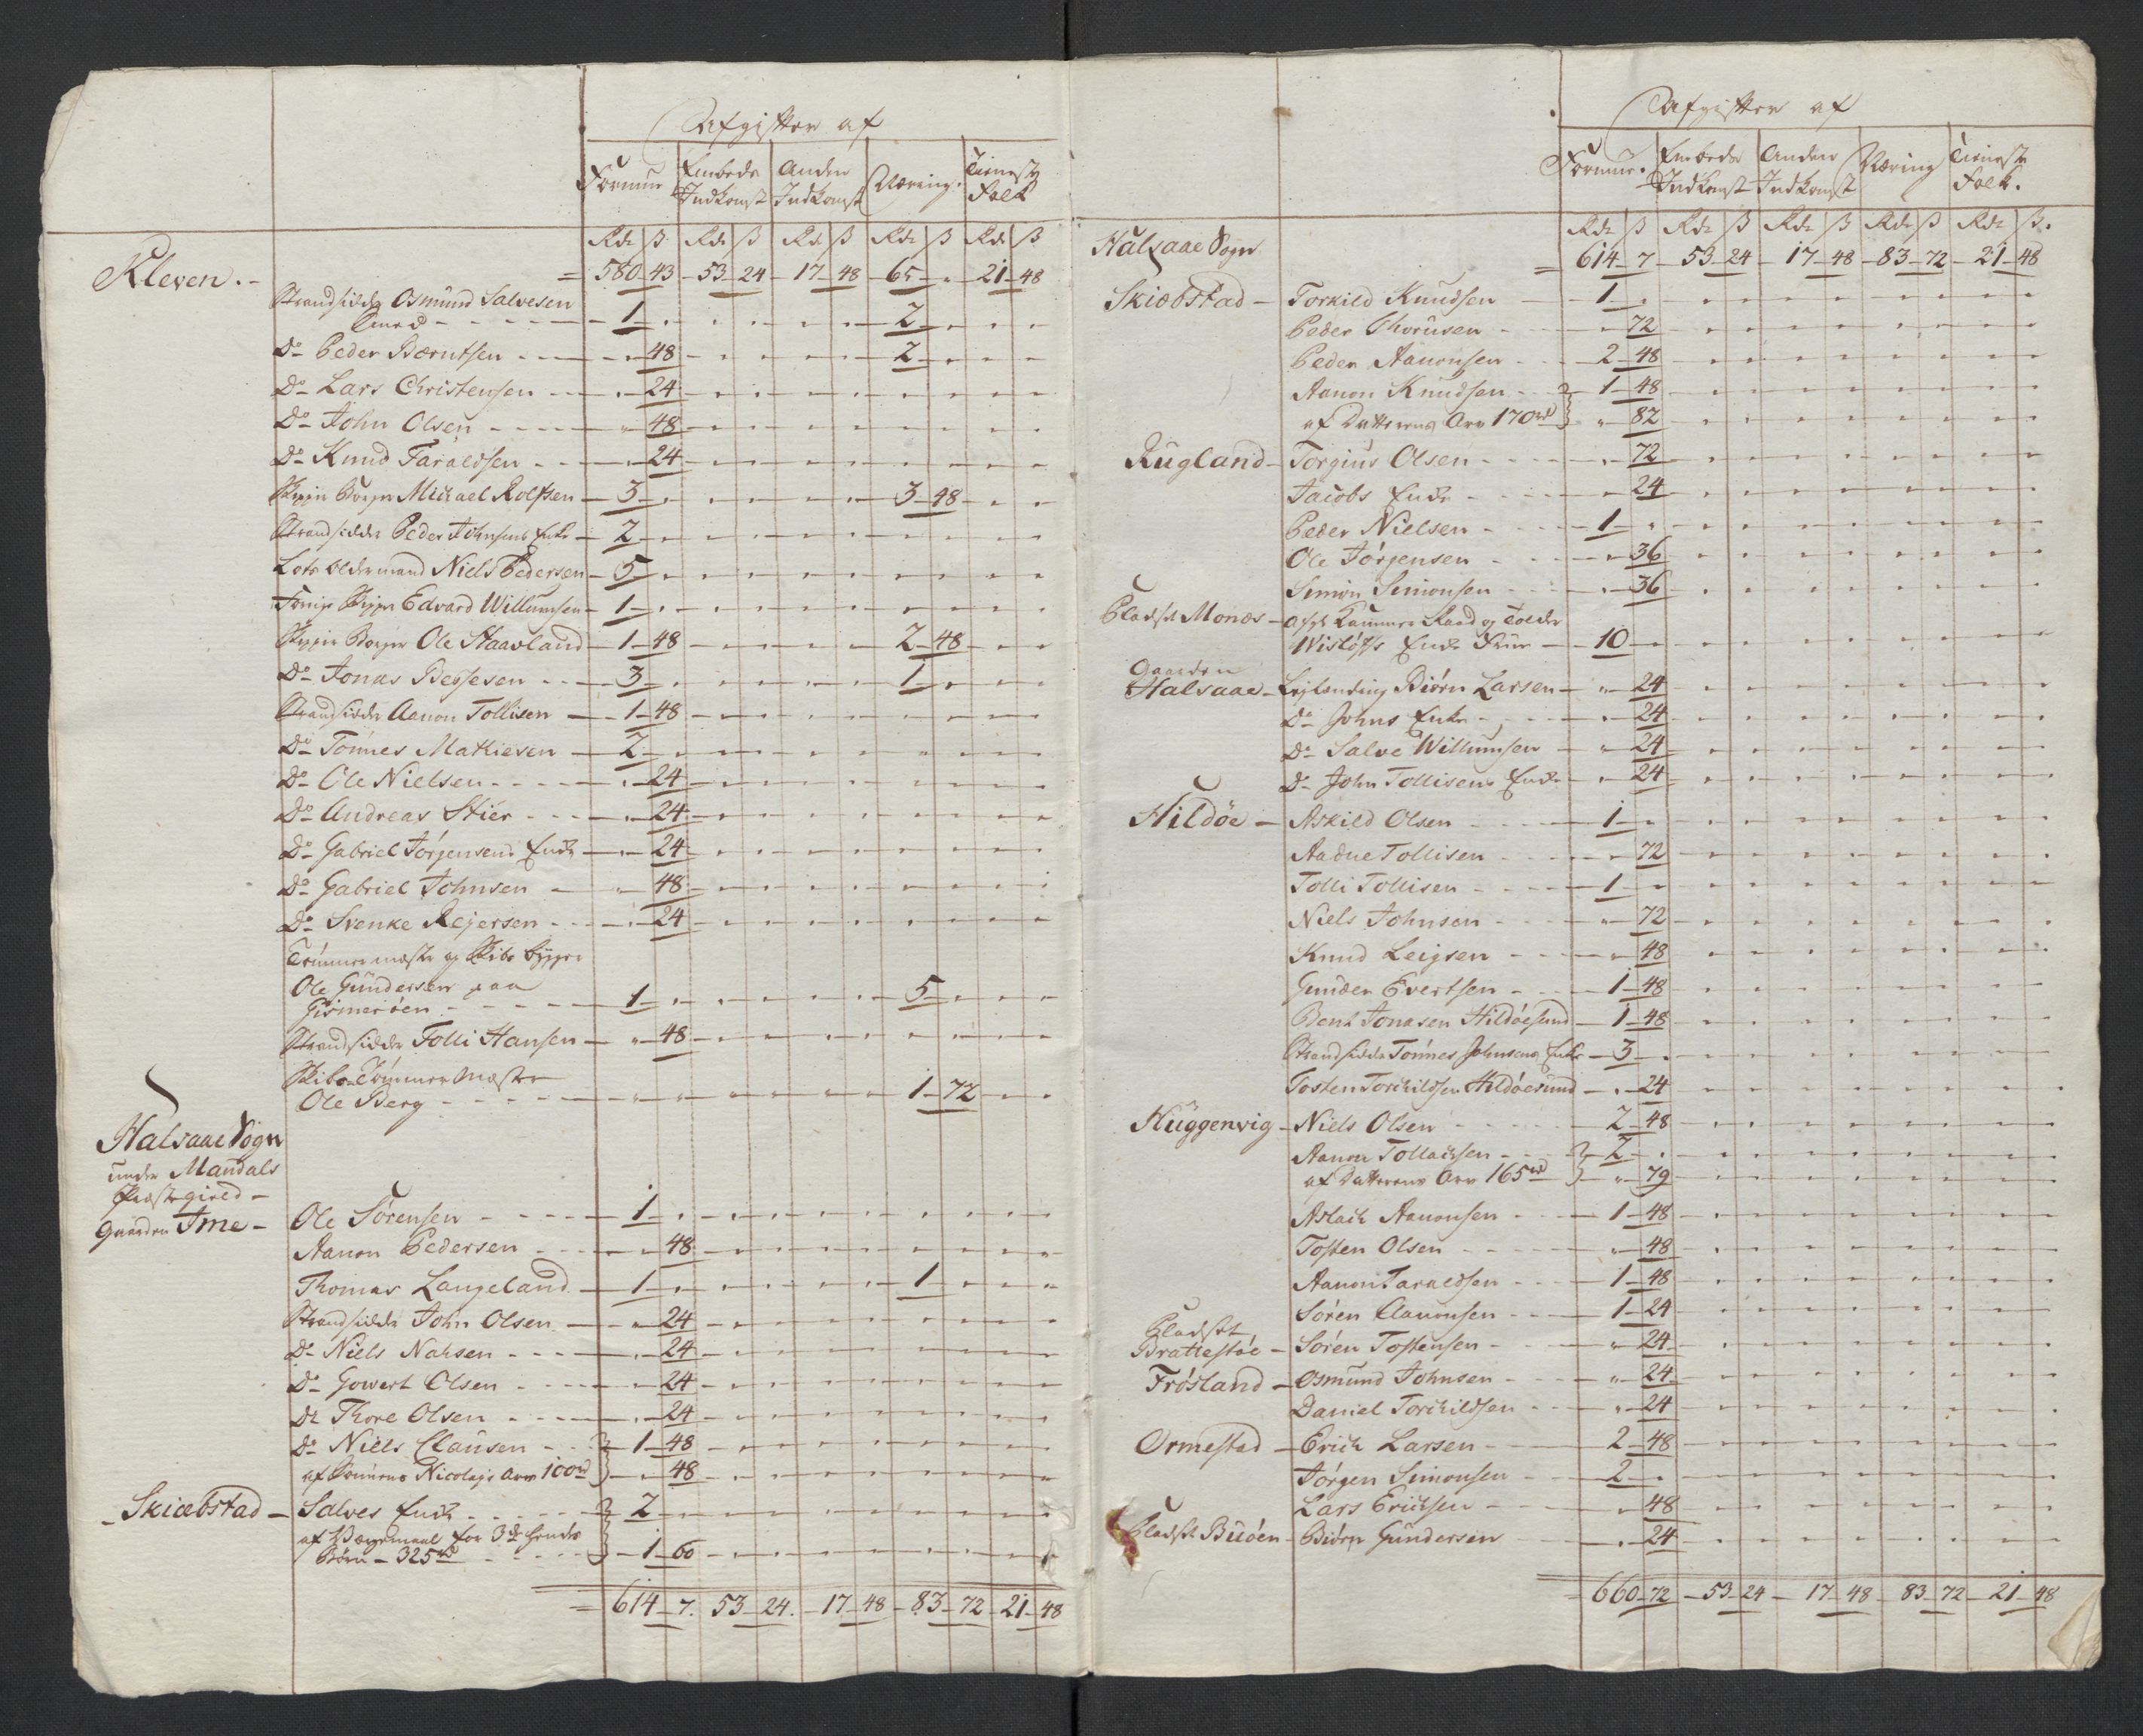 Afgifter af
Formue Embeds Indkomst Anden Indkomst Næring. Tieneste Folk
Rdr ß Rdr ß Rdr ß Rdr ß Rdr ß
Kleven. - = 580 43 - 53 24 - 17 48 - 65 - " 21 48
Strandsidder Osmund Salvesen
Smed - 1 - 2
Do Peder Bærntsen - 48 - 2
Do Lars Christensen - 24
Do John Olsen - 48
Do Knud Taraldsen - 24
Skipper Borger Michael Rolfsen - 3 - 3 48
Strandsidder Peder Johnsens Enke - 2
Lots Oldermand Niels Pedersen - 5
Edvard Willumsen - 1
Skipper Borger Ole Staavland - 1 48 - 2 48
Do Jonas Bessesen - 3 - 1
Strandsidder Aanon Tollisen - 1 48
Do Tønnes Mathiesen - 2
Do Ole Nielsen - 24
Do Andreas Stier - 24
Do Gabriel Jørgensens Enke - 24
Do Gabriel Johnsen - 48
Do Svenke Rejersen - 24
Tømmermester og Skibs bygger
Ole Gundersen paa
Gismerøen - 1 - 5
Strandsidder Tolli Hansen - 48
Skibs Tømmer Mester
Ole Berg - 1 72
Halsaae Sogn
under Mandals
Præstegield -
Gaarden Ime - Ole Sørensen - 1
Aanon Pedersen - 48
Thomas Langeland - 1 - 1
Strandsidder John Olsen - 24
Do Niels Nahsen - 24
Do Gowert Olsen - 24
Do Thore Olsen - 24
Do Niels Clausen - 1 48
af Nicolajs Arv 100 rd - 48
Skiæbstad - Salves Enke - 2
af Værgemaal for 3de hendes
Børn - 325 rd - 1 60
= 614 7. 53 24. - 17 48 - 83 72 - 21 48
Afgifter af
Formue. Embeds Indkomst Anden Indkomst Næring Tieneste Folk.
Rdr ß Rdr ß Rdr ß Rdr ß Rdr ß.
Halsaae Sogn = 614 7 - 53 24 - 17 48 - 83 72 - 21 48
Skiæbstad - Torkild Knudsen - 1
Peder Thorusen - 72
Peder Aanonsen - 2 48
Aanon Knudsen - 1 48
af Datterens Arv 170 rd - 82
Rugland - Torgius Olsen - 72
Jacobs Enke - 24
Peder Nielsen - 1
Ole Jørgensen - 36
Simon Simonsen - 36
Pladset Monæs - Afgl Kammer Raad og Tolder
Wisløffs Enke Frue - 10
Gaarden
Halsaae - Lejlending Biørn Larsen - 24
Do Johns Enke - 24
Do Salve Willumsen - 24
Do John Tollisens Enke - 24
Hildøe - Askild Olsen - 1
Aadne Tollisen - 72
Tolli Tollisen - 1
Niels Johnsen - 72
Knud Leigsen - 48
Gunder Evertsen - 1 48
Bent Jonasen Hildøesund - 1 48
Strandsidder Tønnes Johnsens Enke - 3
Tosten Torchildsen Hildøesund - 24
Huggenvig - Niels Olsen - 2 48
Aanon Tollachsen - 2
af Datterens Arv 165 rd - 79
Aslach Aanonsen - 1 48
Tosten Olsen - 48
Aanon Taraldsen - 1 48
Søren Aanonsen - 1 24
Pladset
Bratiestøe - Søren Tostensen - 24
Frøsland - Osmund Johnsen - 24
Daniel Torchildsen - 24
Ormestad - Erich Larsen - 2 48
Jørgen Simonsen - 2
Lars Erichsen - 48
Pladset Buøen - Biørn Gundersen - 24
= 660 72 - 53 24 - 17 48 - 83 72 - 21 48